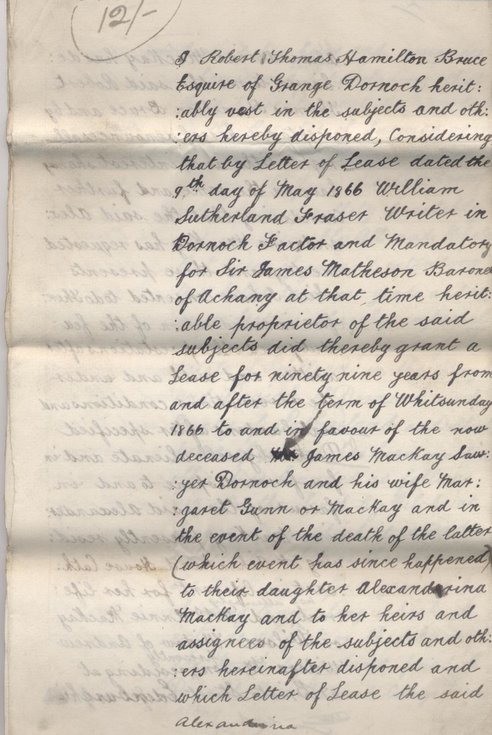 12/-
I Robert Thomas Hamilton Bruce
Esquire of Grange Dornoch herit:
:ably vest in the subjects and oth:
:ers hereby disponed, Considering
that by Letter of Lease dated the
9th day of May 1866 William
Sutherland Fraser Writer in
Dornoch Factor and Mandatory
for Sir James Matheson Barone
of Achany at that time herit:
:able proprietor of the said
subjects did thereby grant a
Lease for ninety nine years from
and after the term of Whitsunday
1866 to and in favour of the now
deceased James Mackay Saw:
:yer Dornoch and his wife Mar:
:garet Gunn or MacKay and in
the event of the death of the latter
(which event has since happened)
to their daughter Alexandrina
MacKay and to her heirs and
assignees of the subjects and oth:
:ers hereinafter disponed and
which Letter of Lease the said
Alexandrina